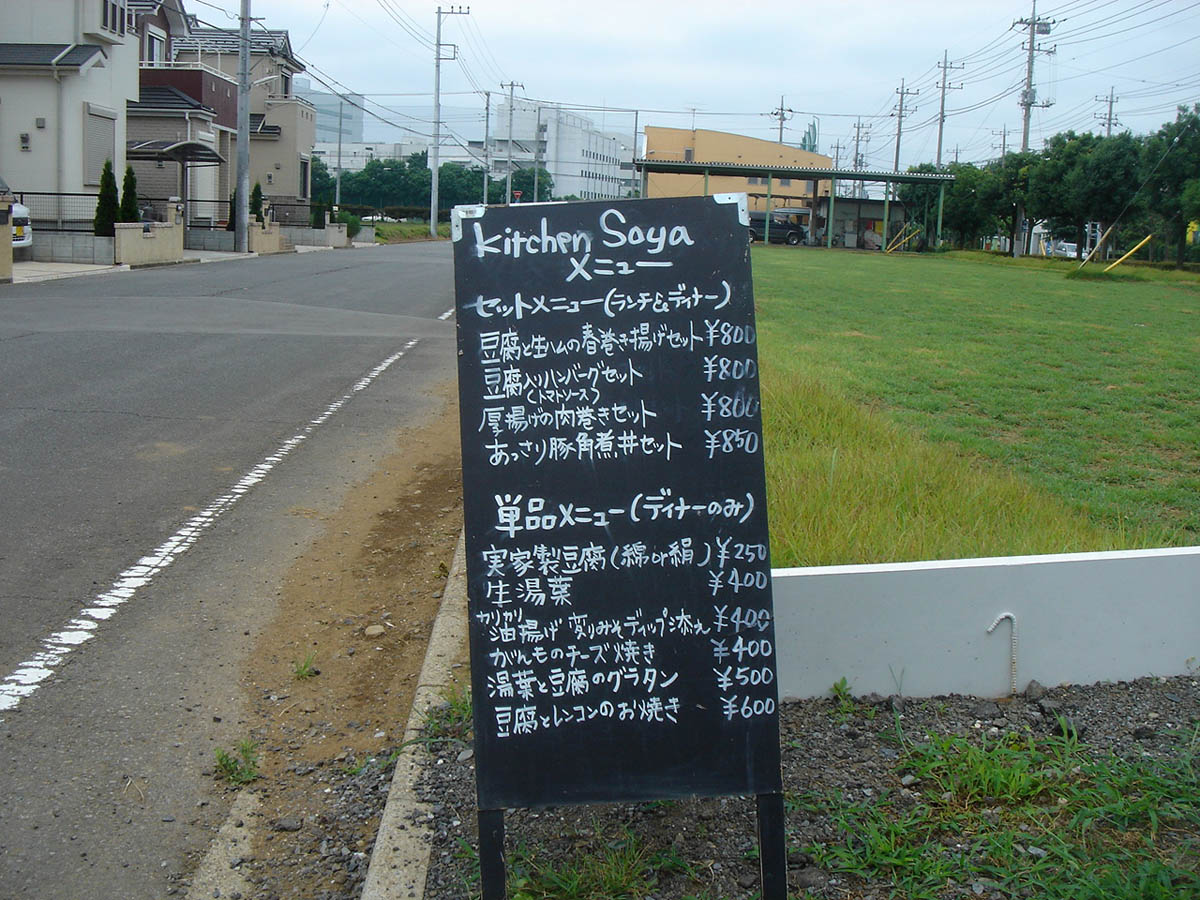 Kitchen Soya
メニュー
セットメニュー(ランチ&ディナー)
豆腐と生ハムの春巻き揚げセット ¥800
豆腐入りハンバーグセット ¥800
(トマトソース)
厚揚げの肉巻きセット ¥800
あっさり豚角煮丼セット ¥850
単品メニュー(ディナーのみ)
実家製豆腐(綿or絹) ¥250
生湯葉 ¥400
カリカリ油揚げ 変りみそディップ添え ¥400
がんものチーズ焼き ¥400
湯葉と豆腐のグラタン ¥500
豆腐とレンコンのお焼き ¥600